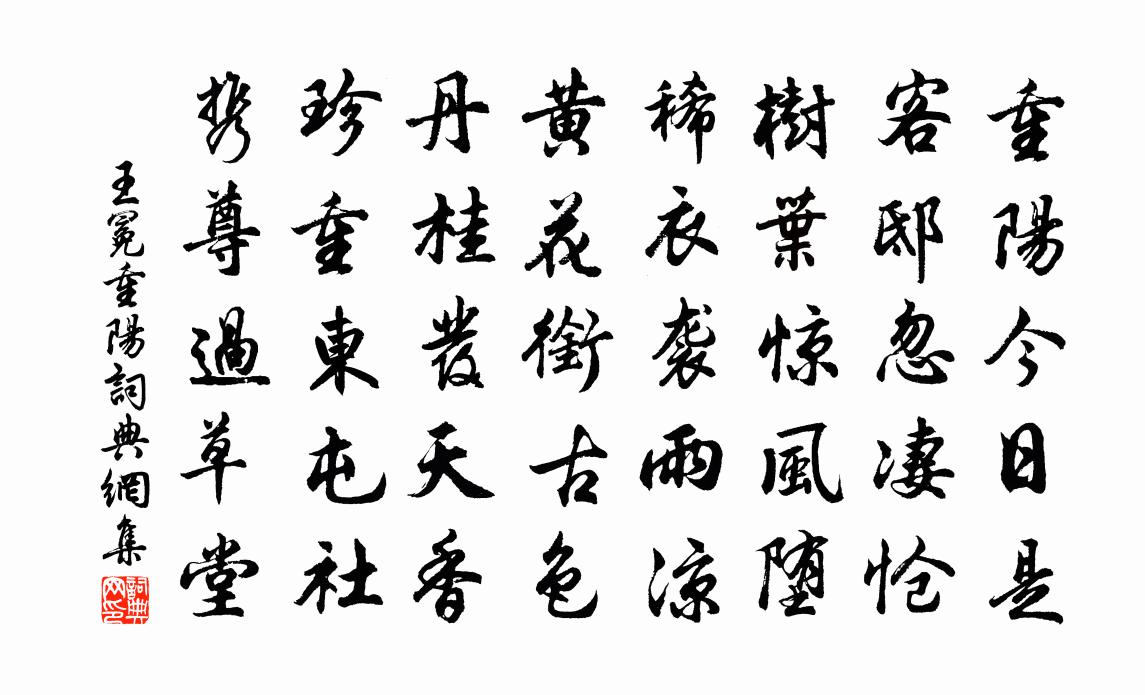 重陽今日是
客邸忽凄怆
樹葉惊風堕
稀衣袭雨凉
黄花銜古色
丹桂發天香
珍重東屯社
携尊過草堂
王冕重陽詞典網集
詞典网印